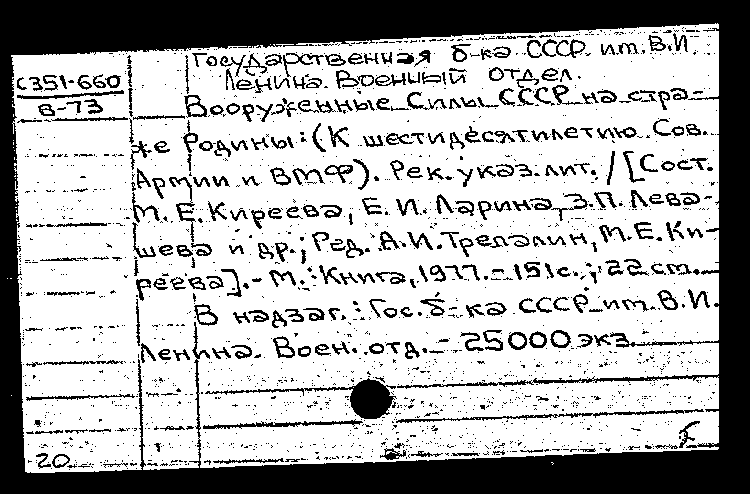 Государственная б-ка СССР им. В.И.
Ленина. Военный отдел.
С351-660
В-73
Вооруженные Силы СССР на стра-
же Родины: (К шестидесятилетию Сов.
Армии и ВМФ). Рек. указ. лит. / [Сост.
М. Е. Киреева, Е. И. Ларина, З.П. Лева-
шева и др.; Ред. А.И. Трепалин, М.Е. Ки-
реева]. - М.: Книга, 1977. - 151с.; 22 см.
В надзаг.: Гос. б-ка СССР им. В.И.
Ленина. Воен. отд. - 25000 экз.
20
Б